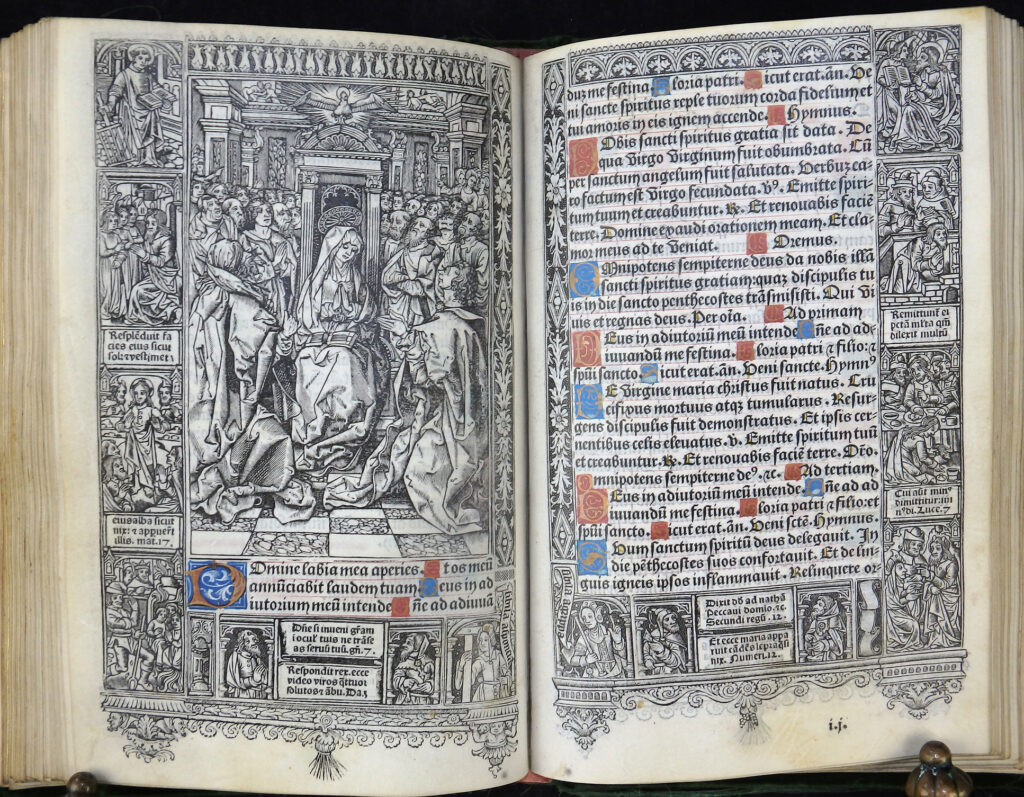 Resplēduit fa
cies eius sicut
sol: ⁊ vestimēt
eius alba sicut
nix: ⁊ appuerūt
illis. mat. 17.
Domine labia mea aperies. Et os meū
annūciabit laudem tuam. Deus in ad
iutorium meū intende. Dñe ad adiuuā
Dñe si inueni grām
in ocul' tuis ne trāse
as seruū tuū. gñ.
Respondit rex. ecce
video viros q̄ttuor
solutos ⁊ābu. Da.3
duz me festina. Gloria patri. Sicut erat. añ. Ve
ni sancte spiritus reple tuorum corda fidelium et
tui amoris in eis ignem accende. Hymnus.
Nobis sancti spiritus gratia sit data. De
qua virgo virginum fuit obumbrata. Cū
per sanctum angelum fuit salutata. Verbuz ca-
ro factum est virgo fecundata. v̄. Emitte spiri-
tum tuum et creabuntur. ℟. Et renouabis faciē
terre. Domine exaudi orationem meam. Et cla-
mor meus ad te veniat. Oremus.
Omnipotens sempiterne deus da nobis illā
sancti spiritus gratiam: quaz discipulis tu
is in die sancto penthecostes trāsmisisti. Qui vi
uis et regnas deus. Per oīa. Ad primam
Deus in adiutoriū meū intende. Dñe ad ad-
iuuandū me festina. Gloria patri ⁊ filio: ⁊
spūi sancto. Sicut erat. añ. Veni sancte. Hymn⁹
De virgine maria christus fuit natus. Cru
cifixus mortuus atqz tumulatus. Resur-
gens discipulis fuit demonstratus. Et ipsis cer-
nentibus celis eleuatus. v. Emitte spiritum tuū
et creabuntur. ℟. Et renouabis faciē terre. Orō.
Omnipotens sempiterne de⁹. ⁊c. Ad tertiam.
Deus in adiutoriū meū intende. Dñe ad ad
iuuandū me festina. Gloria patri ⁊ filio: et
spūi sancto. Sicut erat. añ. Veni sctē. Hymnus.
Suum sanctum spiritū deus delegauit. In
die pēthecostes suos confortauit. Et de lin-
guis igneis ipsos inflammauit. Relinquere or
Remittunt̄ ei
pctā mlta qm̄
dilexit multū
Cui aūt min⁹
dimittitur: mi
n⁹ di. Luce. 7
Dixit dd ad nathā
Peccaui domio. ⁊c.
Secundi regū. 12.
Et ecce maria appa
ruit cādēs lepra q̄si
nix. Numeri. 12.
i.j.